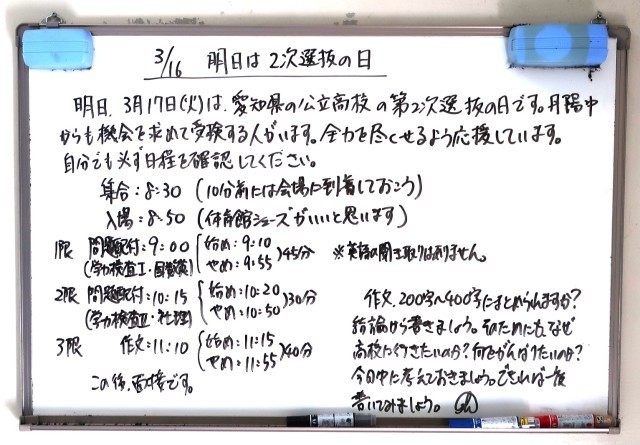 3/16 明日は2次選抜の日
明日、3月17日(火)は、愛知県の公立高校の第2次選抜の日です。月陽中
からも機会を求めて受験する人がいます。全力を尽くせるよう応援しています。
自分でも必ず日程を確認してください。
集合:8:30 (10分前には会場に到着しておこう)
入場:8:50 (体育館シューズがいいと思います)
1限 問題配付:9:00 始め:9:10 45分
(学力検査Ⅰ・国数英) やめ:9:55
※英語の聞き取りはありません。
2限 問題配付:10:15 始め:10:20 30分
(学力検査Ⅱ・社理) やめ:10:50
3限 作文:11:10 始め:11:15 40分
やめ:11:55
この後、面接です。
作文、200字〜400字にまとめられますか?
結論から書きましょう。そのためにも、なぜ
高校に行きたいのか?何をがんばりたいのか?
今日中に考えておきましょう。できれば一度
書いてみましょう。